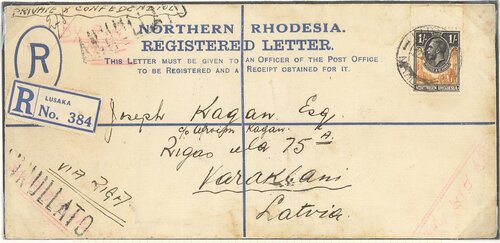 PRIVATE & CONFIDENTIAL
ANNULLATO
NORTHERN RHODESIA.
REGISTERED LETTER.
THIS LETTER MUST BE GIVEN TO AN OFFICER OF THE POST OFFICE
TO BE REGISTERED AND A RECEIPT OBTAINED FOR IT.
1/- 1/-
NORTHERN RHODESIA
R
R LUSAKA
No. 384
Joseph Kagan Esq.
c/o Kagan.
Rigas iela 75 A.
Varaklani
Latvia.
VIA RIGA
ANNULLATO